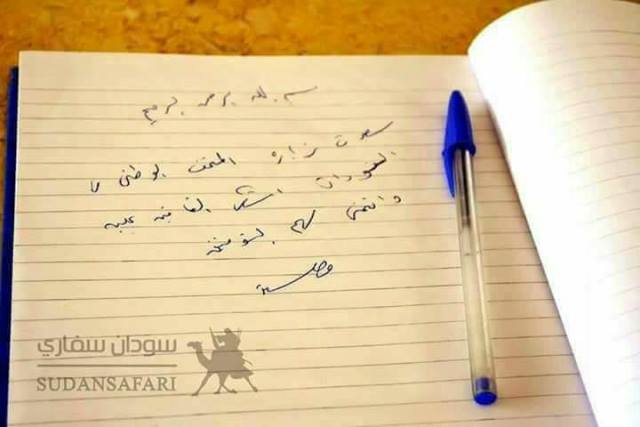 بسم الله الرحمن الرحيم
سعدت بزيارة المتحف الوطني
السودان اشكر القائمين عليه
واتمنى لهم التوفيق
سودان سفاري
SUDANSAFARI